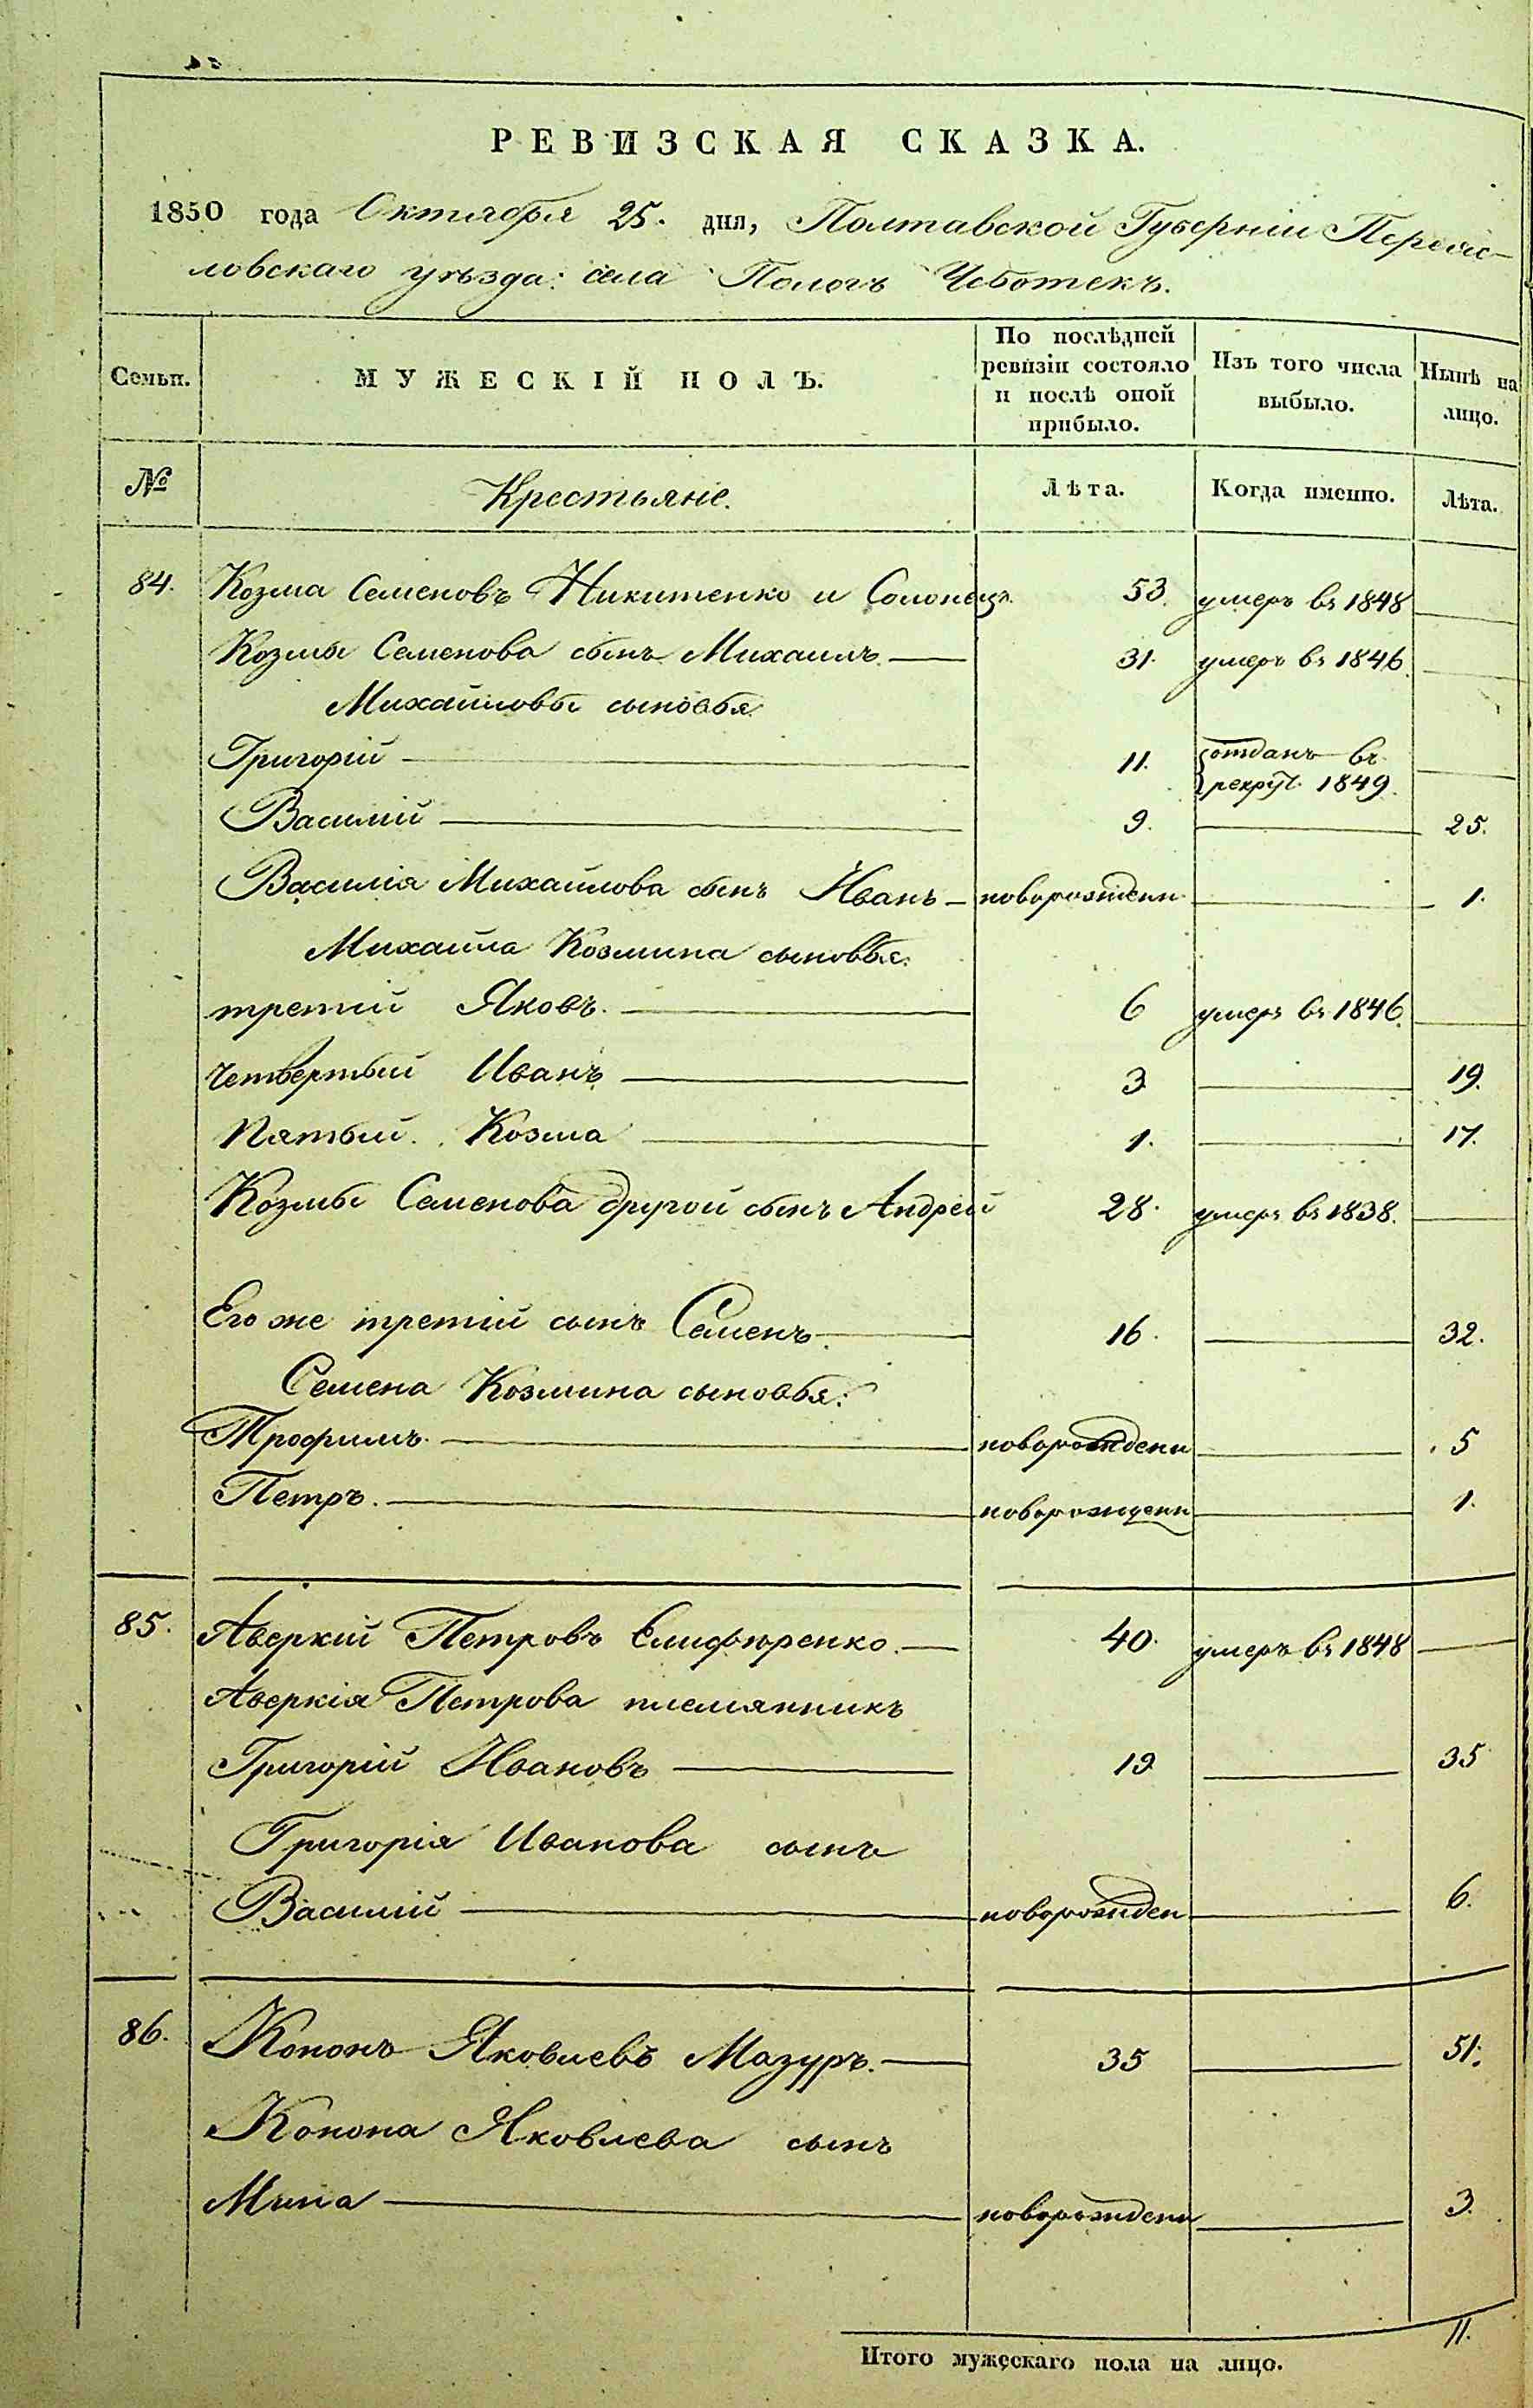 РЕВИЗСКАЯ СКАЗКА.
1850 года Октября 25. дня, Полтавской Губерніи Переяс-
ловскаго уѣзда: села Пологъ Чоботекъ.
Семьи.
МУЖЕСКІЙ ПОЛЪ.
По послѣдней ревизіи состояло и послѣ оной прибыло.
Изъ того числа выбыло.
Нынѣ на лицо.
№ Крестьяне. Лѣта. Когда именно. Лѣта.
84. Козма Семеновъ Никитенко и Солонецъ. 53. умеръ въ 1848
Козмы Семенова сынъ Михаилъ 31. умеръ въ 1846.
Михайловы сыновья
Григорій 11. отданъ въ
рекрут. 1849.
Василій 9. 25.
Василія Михайлова сынъ Иванъ новорожденн. 1.
Михайла Козмина сыновья:
третій Яковъ. 6 умеръ въ 1846.
Четвертый Иванъ 3 19.
Пятый. Козма 1. 17.
Козмы Семенова другой сынъ Андрей 28. умеръ въ 1838.
Его же третій сынъ Семенъ 16. 32.
Семена Козмина сыновья:
Трофимъ. новорожденн 5
Петръ. новорожденн 1.
85. Аверкій Петровъ Елиференко. 40. умеръ въ 1848
Аверкія Петрова племянникъ
Григорій Ивановъ 19 35
Григорія Иванова сынъ
Василій новорожден 6.
86. Кононъ Яковлевъ Мазуръ. 35 51.
Конона Яковлева сынъ
Мина новорожденн 3.
11.
Итого мужескаго пола на лицо.